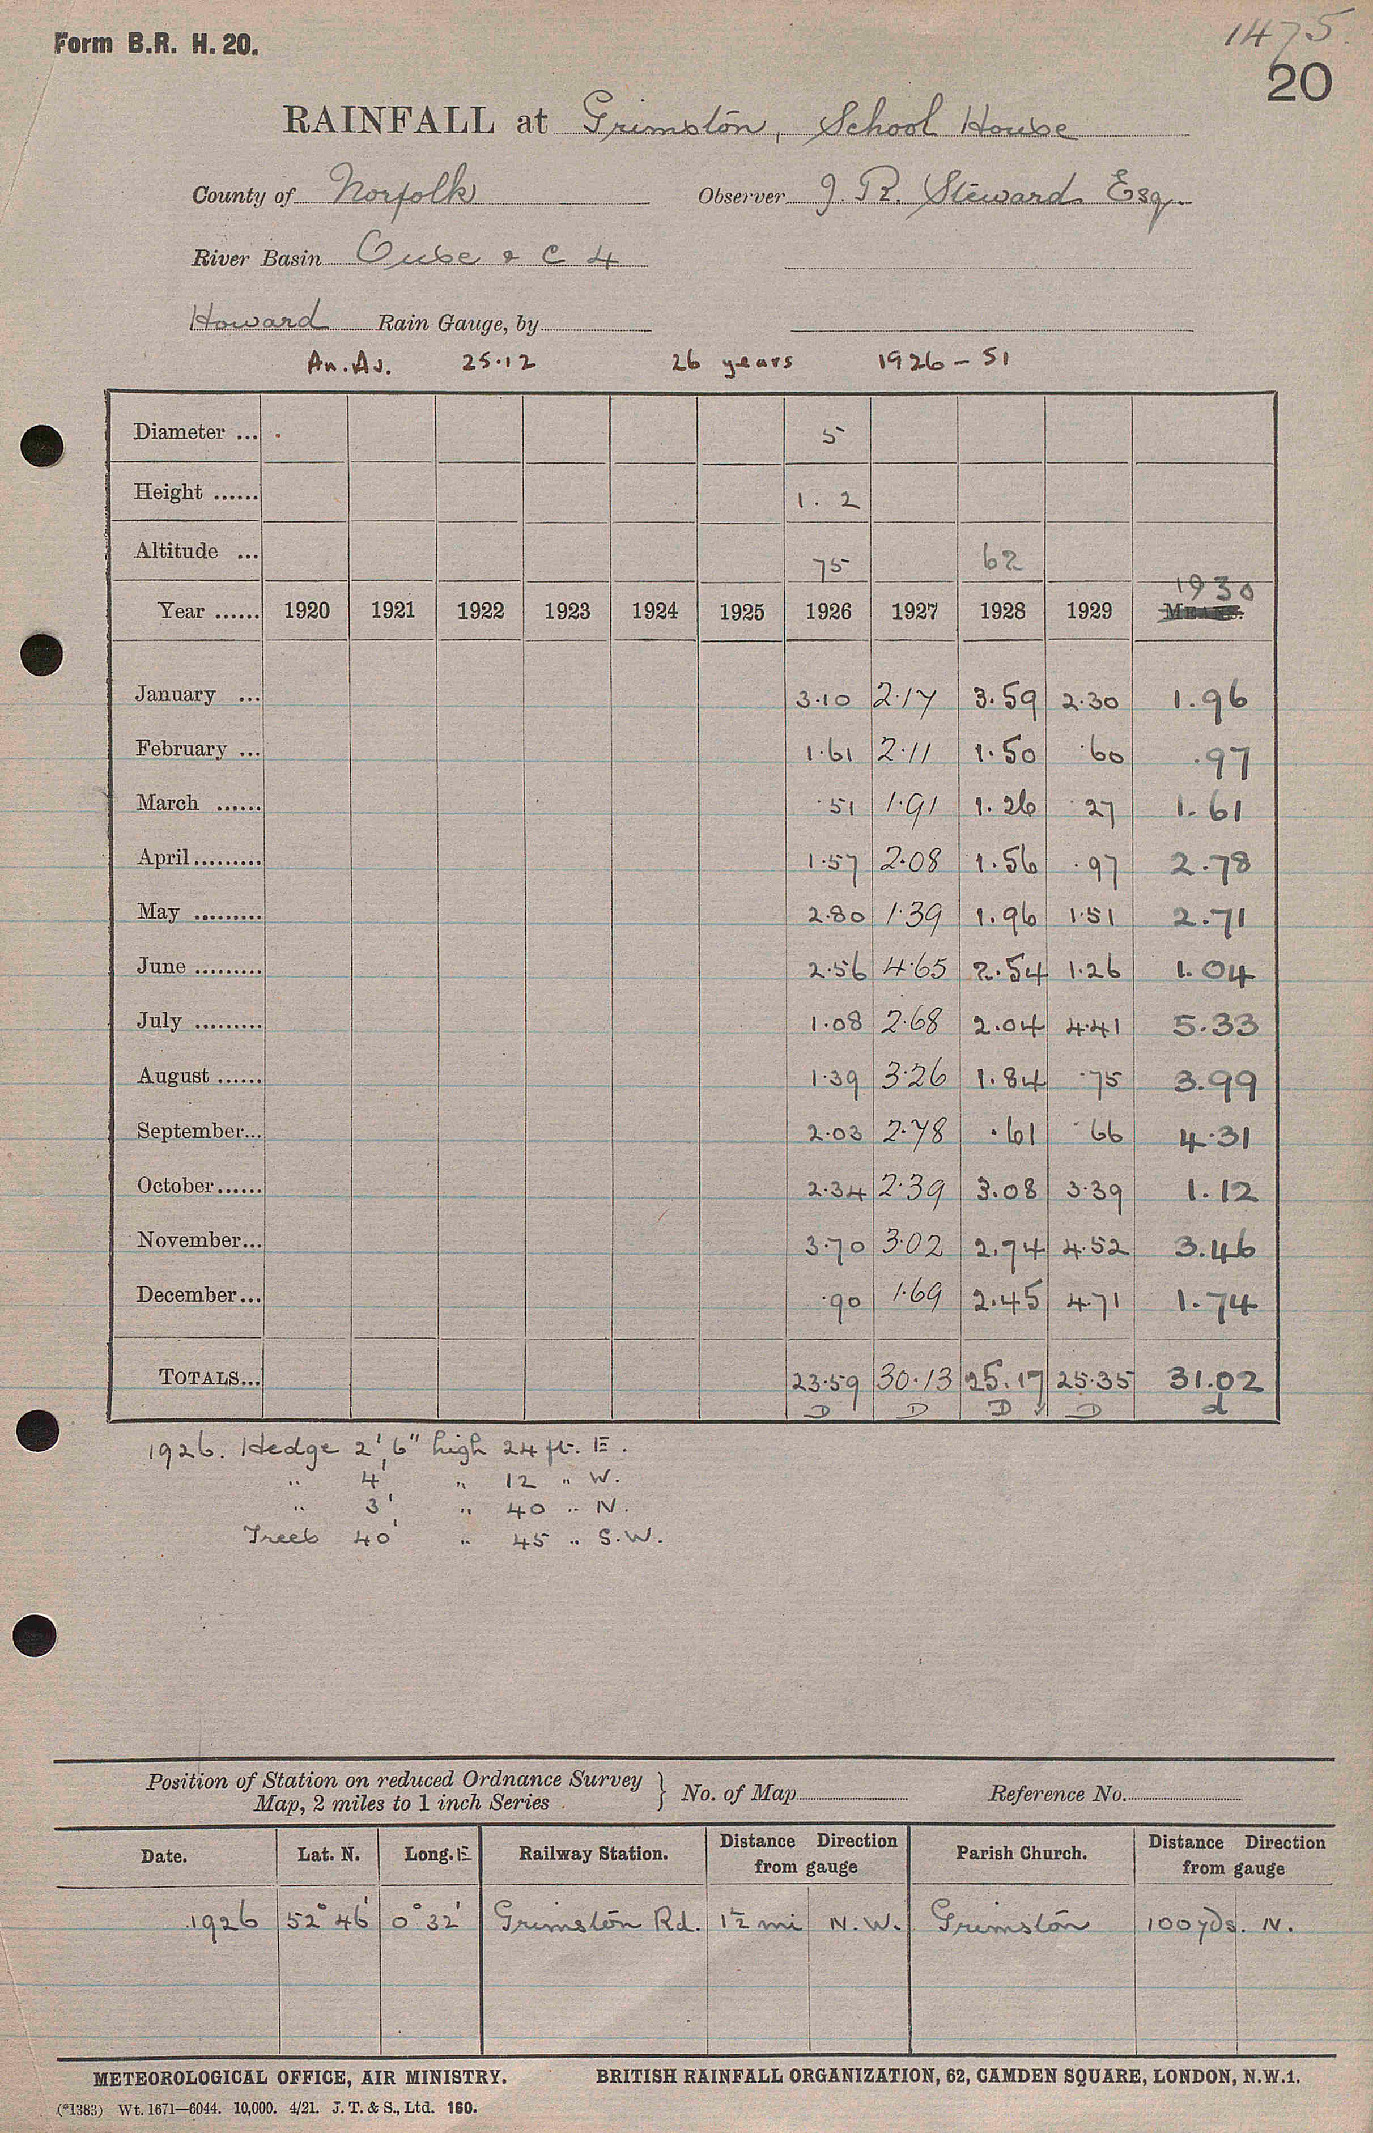 Form B.R. H. 20.
1475.
20
RAINFALL at Grimston, School House
County of Norfolk Observer J. R. Steward Esq.
River Basin Ouse & C 4
Howard Rain Gauge, by
An. Av. 25.12 26 years 1926 - 51
Diameter ... 5
Height ...... 1. 2
Altitude ... 75 62
Year ...... 1920 1921 1922 1923 1924 1925 1926 1927 1928 1929 1930
January ... 3.10 2.17 3.59 2.30 1.96
February ... 1.61 2.11 1.50 .60 .97
March ...... .51 1.91 1.26 .27 1.61
April......... 1.57 2.08 1.56 .97 2.78
May ......... 2.80 1.39 1.96 1.51 2.71
June ......... 2.56 4.65 2.54 1.26 1.04
July ......... 1.08 2.68 2.04 4.41 5.33
August ...... 1.39 3.26 1.84 .75 3.99
September... 2.03 2.78 .61 .66 4.31
October...... 2.34 2.39 3.08 3.39 1.12
November... 3.70 3.02 2.74 4.52 3.46
December... .90 1.69 2.45 4.71 1.74
TOTALS... 23.59 30.13 25.17 25.35 31.02
D D D ✓ D d
1926. Hedge 2' 6" high 24 ft. E.
" 4' " 12 " W.
" 3' " 40 " N.
Trees 40' " 45 " S.W.
Position of Station on reduced Ordnance Survey
Map, 2 miles to 1 inch Series } No. of Map Reference No.
Date. Lat. N. Long. E Railway Station. Distance Direction from gauge Parish Church. Distance Direction from gauge
1926 52° 46' 0° 32' Grimston Rd. 1½ mi N.W. Grimston 100 yds. N.
METEOROLOGICAL OFFICE, AIR MINISTRY. BRITISH RAINFALL ORGANIZATION, 62, CAMDEN SQUARE, LONDON, N.W.1.
(*1383) Wt. 1671—6044. 10,000. 4/21. J. T. & S., Ltd. 160.